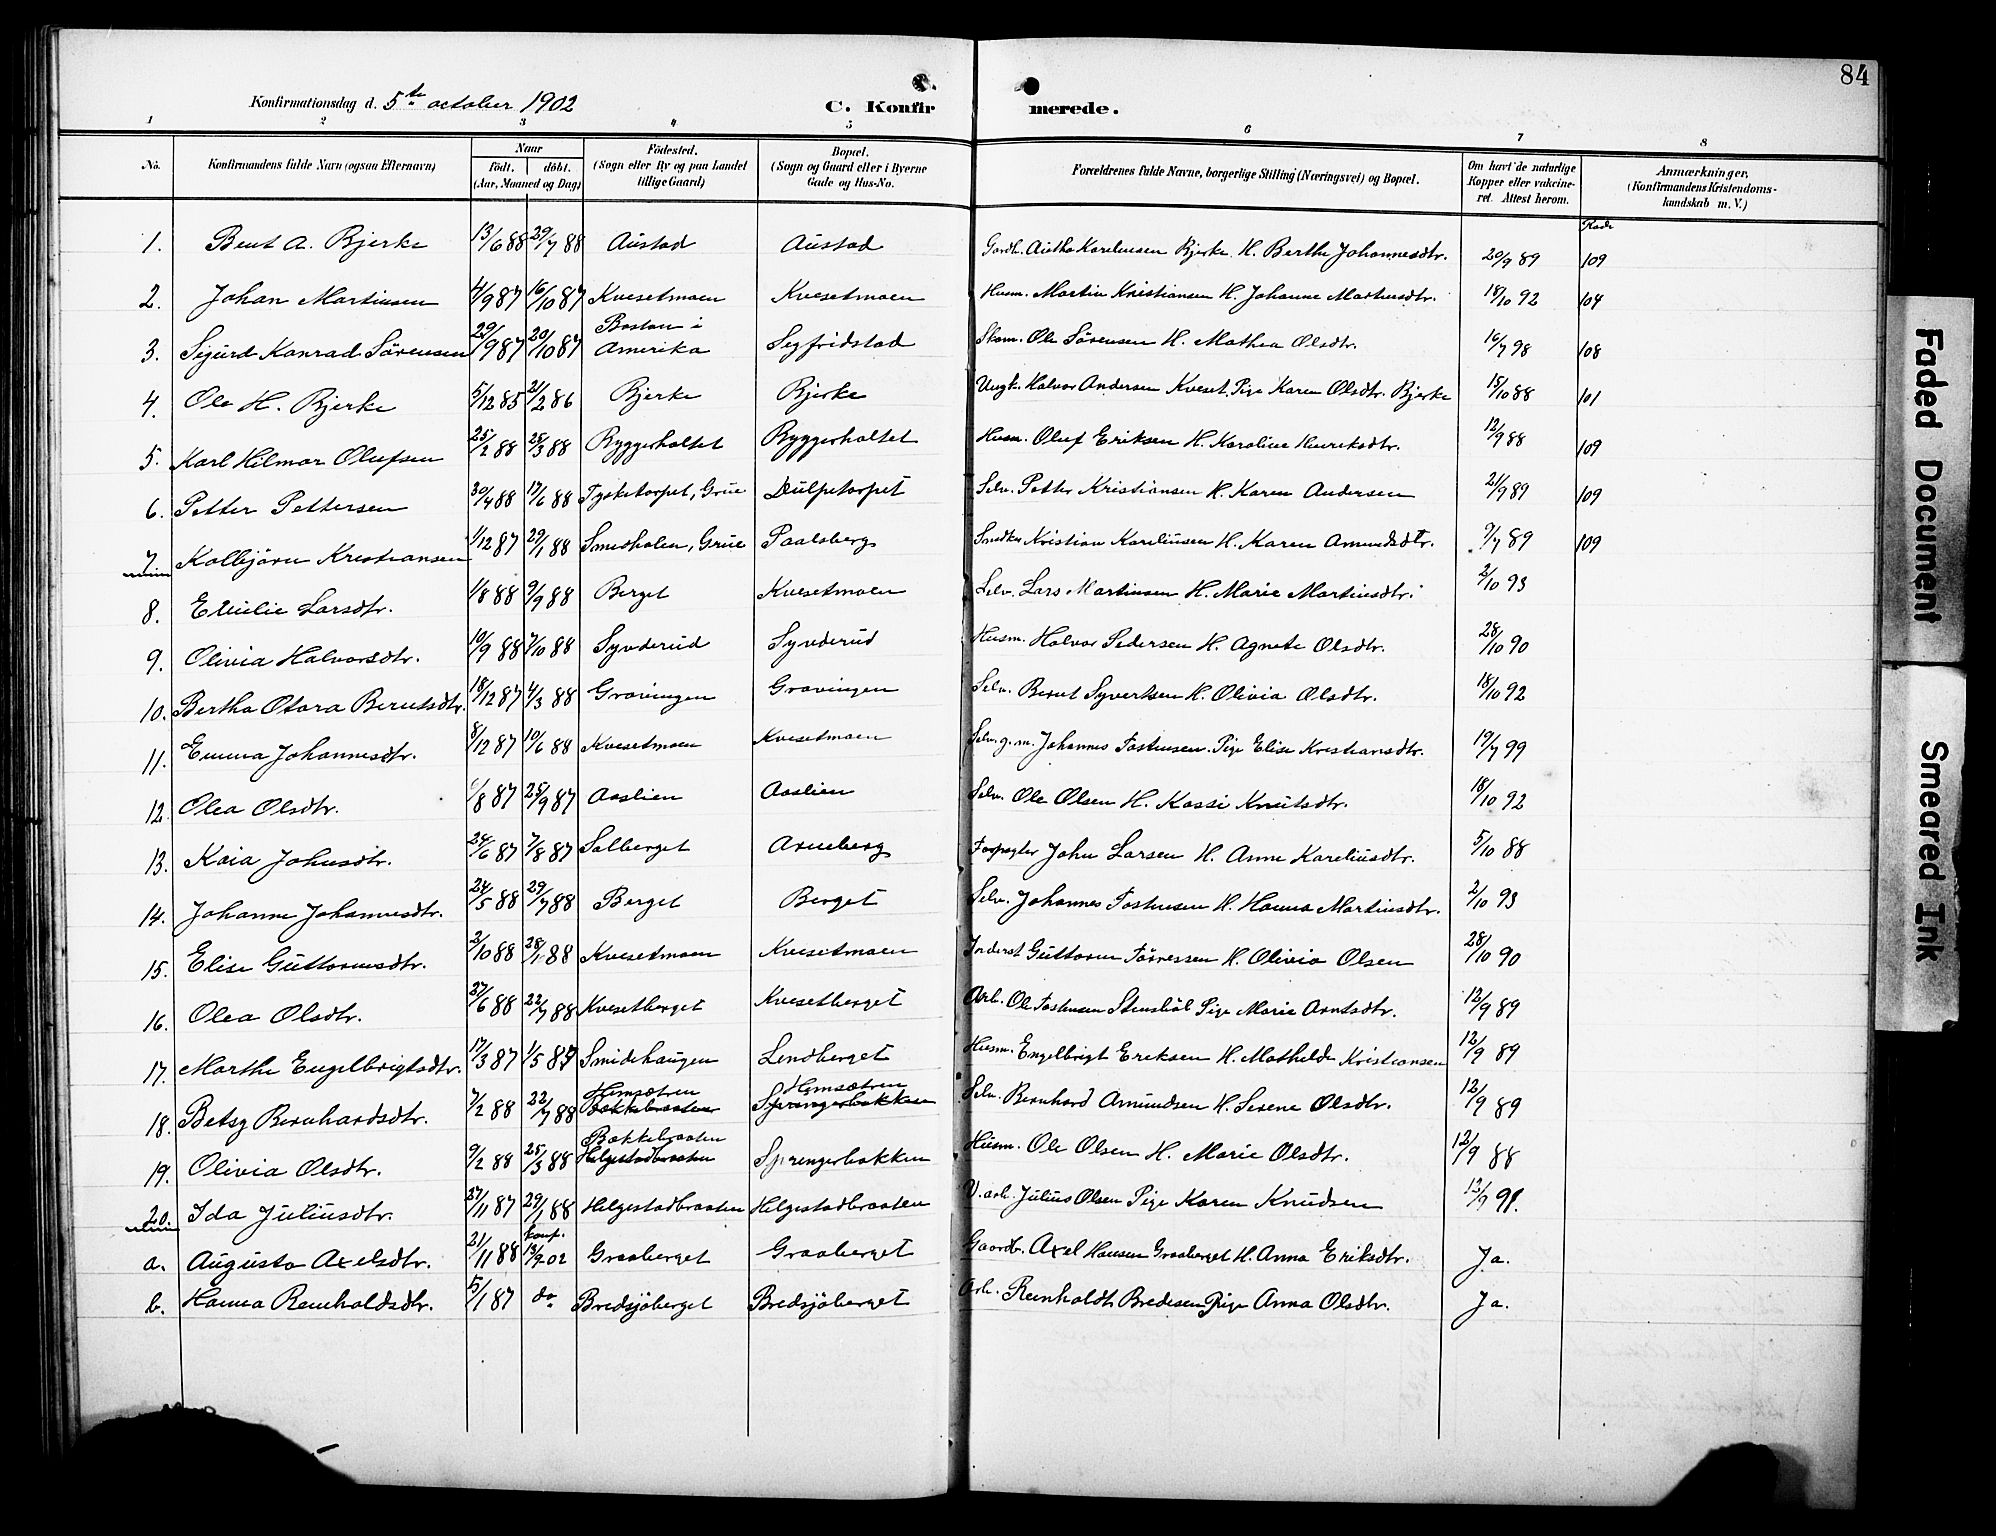 84
Konfirmationsdag d. 5te october 1902
C. Konfirmerede.
1 2 3 4 5 6 7 8
No. Konfirmandens fulde Navn (ogsaa Efternavn) Naar födt. döbt. (Aar, Maaned og Dag) Födested. (Sogn eller By og paa Landet tillige Gaard) Bopæl. (Sogn og Gaard eller i Byerne Gade og Hus-No. Forældrenes fulde Navne, borgerlige Stilling (Næringsvei) og Bopæl. Om havt de naturlige Kopper eller vakcineret. Attest herom. Anmærkninger, (Konfirmandens Kristendomskundskab m. V.)
1. Bent A. Bjerke 13/6 88 29/7 88 Austad Austad Gardb. Karelinsen Bjerke H. Berthe Johannesdtr. 20/9 89 109
2. Johan Martinsen 4/9 87 16/10 87 Kvesetmoen Kvesetmoen Husm. Martin Kristiansen H. Johanne Mathusdtr. 18/10 92 104
3. Sigurd Konrad Sörensen 29/9 87 20/10 87 Boston i Amerika Segfridstad Skom. Ole Sörensen H. Mathea Olsdtr. 16/7 98 108
4. Ole H. Bjerke 5/12 85 21/2 86 Bjerke Bjerke Ungk. Halvor Andersen Kveset, Pige Karen Olsdtr. Bjerke 15/10 88 101
5. Karl Hilmar Olufsen 25/2 88 25/3 88 Byggerholtet Byggerholtet Husm. Oluf Eriksen H. Karoline Henriksdtr. 12/9 88 109
6. Petter Pettersen 30/4 88 17/6 88 Tysketorpet, Grue Dulpetorpet Selv. Petter Kristiansen H. Karen Andersen 21/9 89 109
7. Kolbjörn Kristiansen 1/12 87 29/1 88 Smedholen, Grue Paalsberg Kristian Kareliusen H. Karen Amundsdtr. 9/7 89 109
8. Emilie Larsdtr. 1/8 88 9/9 88 Berget Kvesetmoen Selv. Lars Martinsen H. Marie Martinsdtr. 2/10 93
9. Olivia Halvorsdtr. 10/9 88 7/10 88 Syvderud Syvderud Husm. Halvor Pedersen H. Agnete Olsdtr. 28/10 90
10. Bertha Otara Berntsdtr. 18/12 87 4/3 88 Gravingen Gravingen Selv. Bernt Syvertsen H. Olivia Olsdtr. 18/10 92
11. Emma Johannesdtr. 8/12 87 10/6 88 Kvesetmoen Kvesetmoen Selv. g.m. Johannes Fostensen. Pige Elise Kristiansdtr. 19/7 99
12. Olea Olsdtr. /8 87 25/9 87 Aaslien Aaslien Selv. Ole Olsen H. Kassi Knutsdtr. 18/10 92
13. Kaia Johnsdtr. 24/6 87 7/8 87 Solberget Arneberg Forpagter John Larsen H. Anne Kareliusdtr. 5/10 88
14. Johanne Johannesdtr. 24/5 88 29/7 88 Berget Berget Selv. Johannes Fostensen H. Hanna Martinsdtr. 2/10 93
15. Elise Guttormsdtr. 2/10 88 28/1 88 Kvesetmoen Kvesetmoen Inderst Guttorm Törressen H. Olivia Olsen 28/10 90
16. Olea Olsdtr. 27/6 88 22/7 88 Kvesetberget Kvesetberget Arb. Ole Fostensen Stensböl Pige Marie Arntsdtr. 12/9 89
17. Marthe Engelbrigtsdtr. 17/3 87 1/5 87 Smidehaugen Lendberget Husm. Engelbrigt Eriksen H. Mathilde Kristiansen 12/9 89
18. Betsy Bernhardsdtr. 7/2 88 22/7 88 Hemsætren Bakkebraaten Hemsætren Sprengerbakken Selv. Bernhard Amundsen H. Serene Olsdtr. 12/9 89
19. Olivia Olsdtr. 9/2 88 25/3 88 Bakkebraaten Helgestadbraaten Sprengerbakken Husm. Ole Olsen H. Marie Olsdtr. 12/9 88
20. Ida Juliusdtr. 27/11 87 29/1 88 Helgestadbraaten Helgestadbraaten V. arb. Julius Olsen Pige Karen Knudsen 12/9 91.
a. Augusta Axelsdtr. 21/11 88 konf. 13/9 02 Graaberget Graaberget Gaardbr. Axel Hansen Graaberget H. Anna Eriksdtr. Ja.
b. Hanna Reinholdsdtr. 5/1 87 do Bredsjöberget Bredsjöberget Arb. Reinholdt Bredesen Pige Anna Olsdtr. Ja.
Faded Document
Smeared Ink